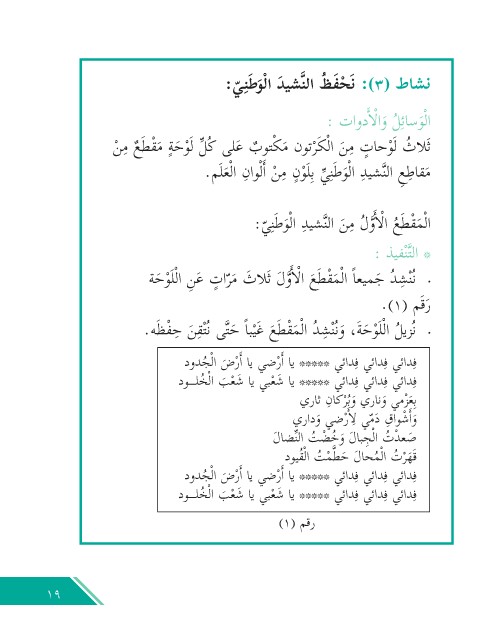 نشاط (٣): نَحْفَظُ النَّشيدَ الْوَطَنِيّ:
الْوَسائِلُ وَالْأَدوات :
ثَلاثُ لَوْحاتٍ مِنَ الْكَرْتون مَكْتوبٌ عَلى كُلِّ لَوْحَةٍ مَقْطَعٌ مِنْ
مَقاطِعِ النَّشيدِ الْوَطَنِيِّ بِلَوْنٍ مِنْ أَلْوانِ الْعَلَم.
الْمَقْطَعُ الْأَوَّلُ مِنَ النَّشيدِ الْوَطَنِيّ:
* التَّنْفيذ :
. نُنْشِدُ جَميعاً الْمَقْطَعَ الْأَوَّلَ ثَلاثَ مَرّاتٍ عَنِ اللَّوْحَة
رَقَم (١).
. نُزيلُ اللَّوْحَةَ، وَنُنْشِدُ الْمَقْطَعَ غَيْباً حَتَّى نُتْقِنَ حِفْظَه.
فِدائي فِدائي فِدائي ***** يا أَرْضي يا أَرْضَ الْجُدود
فِدائي فِدائي فِدائي ***** يا شَعْبي يا شَعْبَ الْخُلــود
بِعَزْمي وَناري وَبُرْكانِ ثاري
وَأَشْواقِ دَمّي لِأَرْضي وَداري
صَعدْتُ الْجِبالَ وَخُضْتُ النِّضالَ
قَهَرْتُ الْمُحالَ حَطَّمْتُ الْقُيود
فِدائي فِدائي فِدائي ***** يا أَرْضي يا أَرْضَ الْجُدود
فِدائي فِدائي فِدائي ***** يا شَعْبي يا شَعْبَ الْخُلــود
رقم (١)
١٩